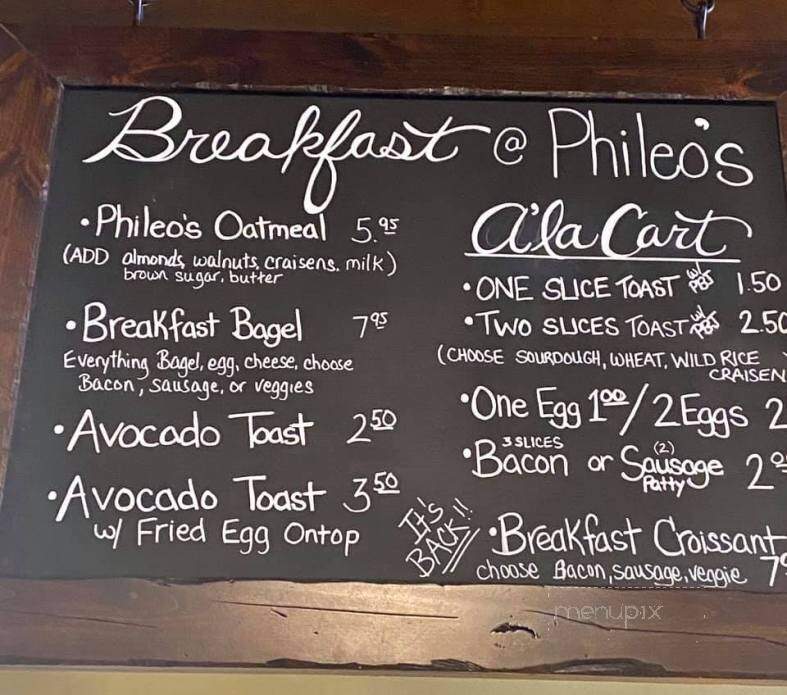 Breakfast @ Phileo's
• Phileo's Oatmeal 5.95
(ADD almonds, walnuts, craisens, milk)
brown sugar, butter
• Breakfast Bagel 7 95
Everything Bagel, egg, cheese, choose
Bacon, sausage, or veggies
• Avocado Toast 2 50
• Avocado Toast 3 50
w/ Fried Egg Ontop
A'la Cart
• ONE SLICE TOAST w/ PB&J 1.50
• TWO SLICES TOAST w/ PB&J 2.50
(CHOOSE SOURDOUGH, WHEAT, WILD RICE
CRAISEN
• One Egg 1 00 / 2 Eggs 2
3 SLICES (2)
• Bacon or Sausage 2
Patty
IT'S BACK!!
• Breakfast Croissant
choose Bacon, sausage, veggie 7
menupix